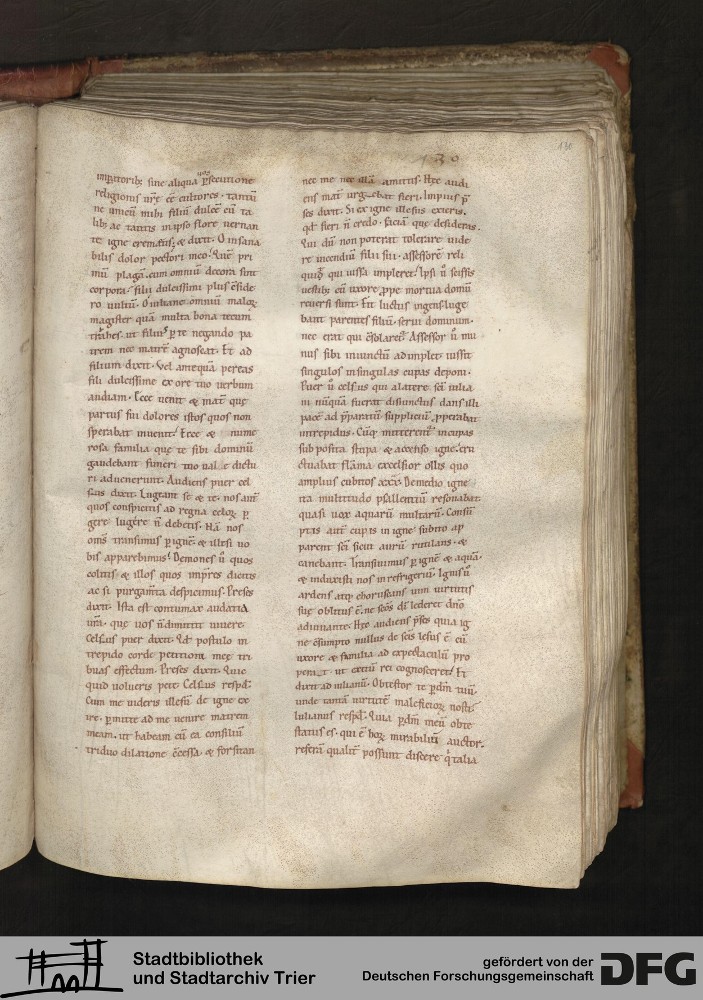 130
130
impatoribꝫ sine aliqua psecutione
religionis urē eē cultores. tantū
ne unicū mihi filiū dulcē cū ta
libꝫ ac tantis in ipso flore uernan
te igne crematuꝰ; & dixit. O insana
bilis dolor pectori meo. Quē pri
mū plagā. cum omniū decora sint
corpora. filii dulcissimi plus c̄side
ro uultū. O iuliane omniū maloꝝ
magister quā multa bona tecum
trahes. ut filiꝰ p te negando pa
trem nec matrē agnoscat. Et ad
filium dixit. Vel antequā pereas
fili dulcissime ex ore tuo uerbum
audiam. Ecce uenit & mat quę
partus sui dolores istos quos non
sperabat inuenit. Ecce & nume
rosa familia que te sibi dominū
gaudebant funeri tuo uale dictu
ri aduenerunt. Audiens puer cel
sus dixit. Lugeant se & te. nos aut̄
quos conspicitis ad regna celoꝝ p
gere lugere n̄ debetis. Nā nos
oms transimus p ignē. & illesi uo
bis apparebimus. Demones ū quos
colitis. & illos quos impres dicitis
ac si purgamta despicimus. Preses
dixit. Ista est contumax audatia
urā. que uos n̄ dimittit uiuere.
Celsus puer dixit. Qd postulo in
trepido corde petitioni meę tri
buas effectum. Preses dixit. Quic
quid uolueris pete. Celsus respd.
Cum me uideris illesū de igne ex
ire. pmitte ad me uenire matrem
meam. ut habeam cū ea consiliū
triduo dilatione c̄cessa. & forsitan
nec me nec illā amittis. Hęc audi
ens mat urgebat fieri. Impius p̄
ses dixit. Si ex igne illesus exieris.
qd fieri n̄ credo. faciā que desideras.
Qui dū non poterat tolerare uide
re incendiū filii sui. assessorē reli
quiꝫ qui iussa impleret. Ipsi ū scissis
uestibꝫ cū uxore ppe mortua domū
reuersi sunt. Fit luctus ingens. luge
bant parentes filiū. serui dominum.
nec erat qui c̄solaret. Assessor ū mu
nus sibi iniunctū adimplet. iussit
singulos in singulas cupas deponi.
Puer ū celsus qui a latere sci iulia
ni nūquā fuerat disiunctus dans illi
pacē ad p̄paratū suppliciū pperabat
intrepidus. Cūq; mitterent in cupas
sub posita stipa & accenso igne. eru
ctuabat flāma excelsior ollis quo
amplius cubitos xxx. De medio igne
ita multitudo psallentiū resonabat.
quasi uox aquarū multarū. Consū
ptas aut̄ cupas in igne. subito ap
parent sci sicut aurū rutilans. &
canebant. Transiuimus p ignē & aquā.
& induxisti nos in refrigeriū. Ignis ū
ardens atq; choruscans uim uirtutis
suę oblitus ē. ne scōs dī lederet dnō
adiuuante. Hęc audiens p̄ses quia ig
ne c̄sumpto nullus de scis lesus ē cū
uxore & familia ad expectaculū pro
perat. ut exitū rei cognosceret. Et
dixit ad iulianū. Obtestor te p dm̄ tuū.
unde tantā uirtutē maleficioꝝ nosti.
Iulianus respd. Quia p dm̄ meū obte
status es. qui ē hoꝝ mirabiliū auctor.
referā qualit possunt discere q̄ talia
Stadtbibliothek
und Stadtarchiv Trier
gefördert von der
Deutschen Forschungsgemeinschaft
DFG